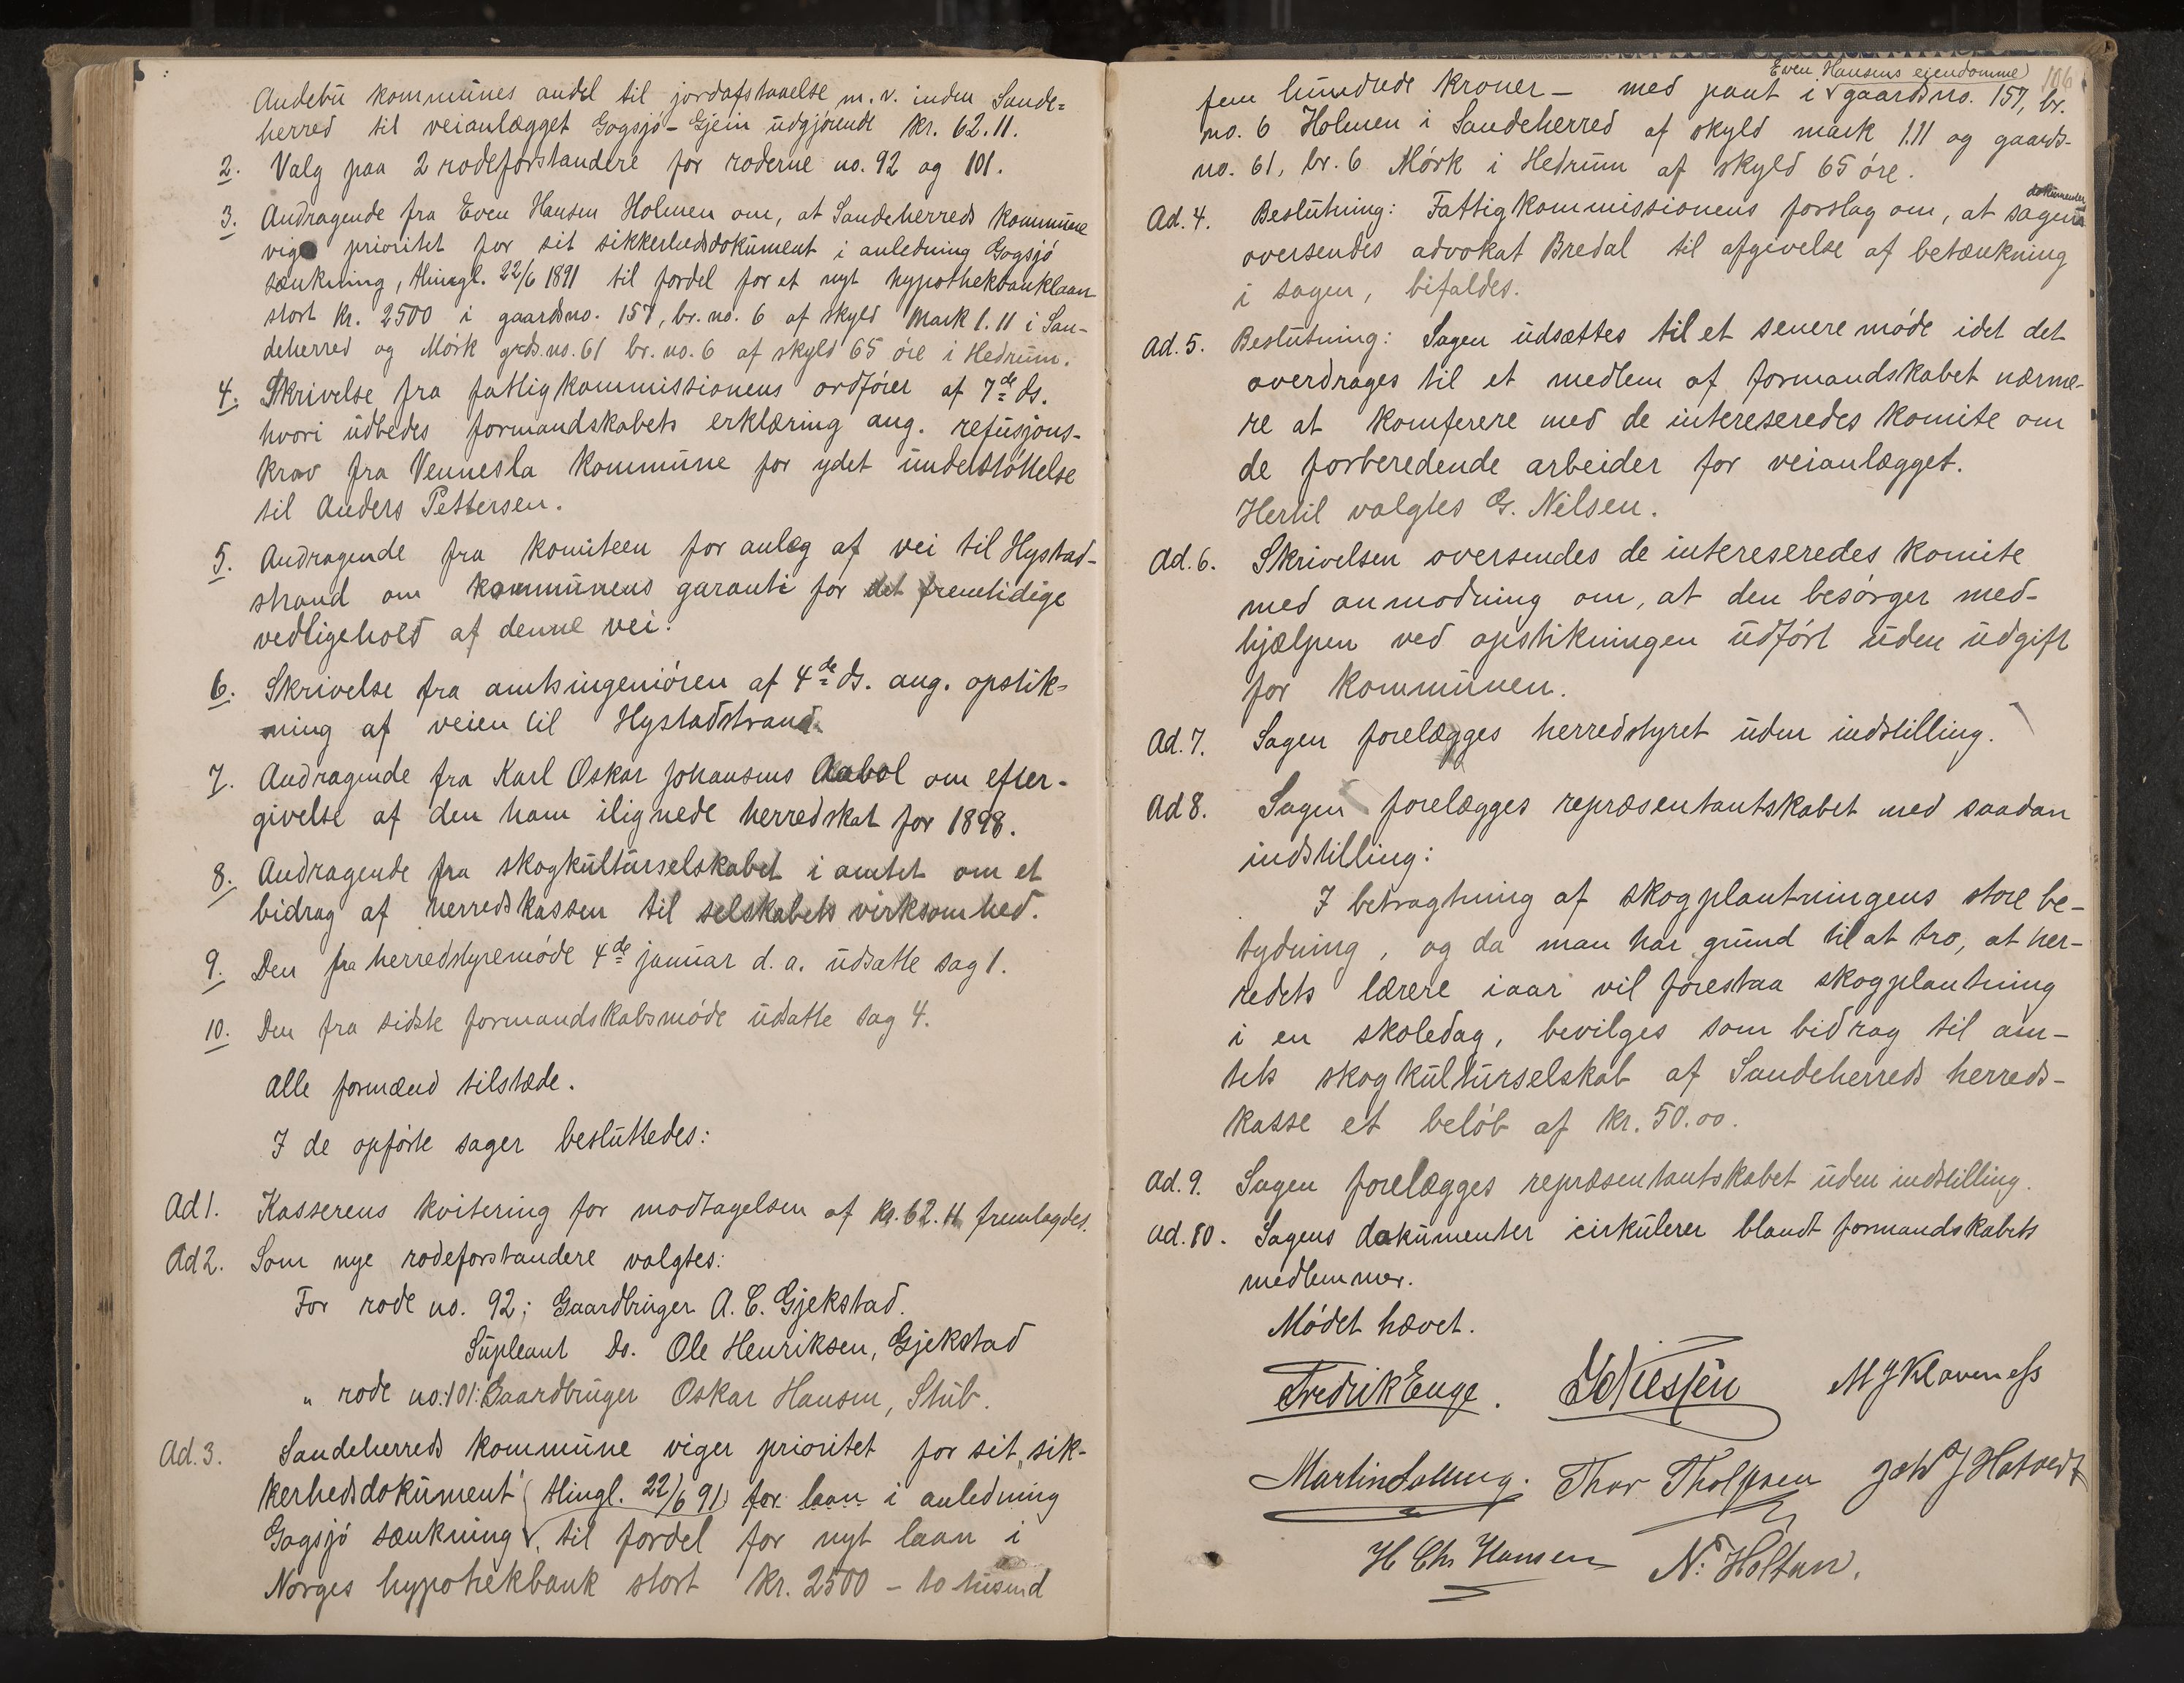 Andebu kommunes andel til jordafstaaelse m. v. inden Sande=
herred til veianlægget Gogsjø - Gjein udgjørende kr. 62.11.
2. Valg paa 2 rodeforstandere for roderne no. 92 og 101.
3. Andragende fra Even Hansen Holmen om, at Sandeherreds kommune
vige prioritet for sit sikkerhedsdokument i anledning Gogsjø
sænkning, thingl. 22/6 1891 til fordel for et nyt hypothekbanklaan
stort kr. 2500 i gaardsno. 157, br. no. 6 af skyld mark 1.11 i San-
deherred og Mørk grds. no. 61 br. no. 6 af skyld 65 øre i Hedrum.
4. Skrivelse fra fattigkommissionens ordfører af 7de ds.
hvori udbedes formandskabets erklæring ang. refusjons-
krav fra Vennesla kommune for ydet understøttelse
til Anders Pettersen.
5. Andragende fra komiteen for anlæg af vei til Hystad-
strand om kommunens garanti for det fremtidige
vedligehold af denne vei.
6. Skrivelse fra amtsingeniøren af 4de ds. ang. opstik-
ning af veien til Hystadstrand.
7. Andragende fra Karl Oskar Johansens Aabol om efter-
givelse af den ham ilignede herredskat for 1898.
8. Andragende fra skogkulturselskabet i amtet om et
bidrag af herredskassen til selskabets virksomhed.
9. Den fra herredstyremøde 4de januar d. a. udsatte sag 1.
10. Den fra sidste formandskabsmøde udsatte sag 4.
Alle formænd tilstæde.
I de opførte sager besluttedes:
Ad 1. Kasserens kvitering for modtagelsen af kr. 62.11 fremlagdes.
Ad 2. Som nye rodeforstandere valgtes:
For rode no. 92; Gaardbruger A. C. Gjekstad.
Supleant Do. Ole Henriksen, Gjekstad
" rode no: 101: Gaardbruger Oskar Hansen, Stub.
Ad. 3. Sandeherreds kommune viger prioritet for sit "sik-
kerhedsdokument" (thingl. 22/6 91) for laan i anledning
Gogsjø sænkning, til fordel for nyt laan i
Norges hypothekbank stort kr. 2500 - to tusend
106
Even Hansens eiendomme
fem hundrede kroner - med pant i gaardsno. 157, br.
no. 6 Holmen i Sandeherred af skyld mark 1.11 og gaards-
no. 61, br. 6 Mørk i Hedrum af skyld 65 øre.
dokumenter
Ad. 4. Beslutning: Fattigkommissionens forslag om, at sagens
oversendes advokat Bredal til afgivelse af betænkning
i sagen, bifaldes.
Ad. 5. Beslutning: Sagen udsættes til et senere møde idet det
overdrages til et medlem af formandskabet nærme-
re at komferere med de intereseredes komite om
de forberedende arbeider for veianlægget.
Hertil valgtes G. Nilsen.
Ad. 6. Skrivelsen oversendes de intereseredes komite
med anmodning om, at den besørger med-
hjælpen ved opstikningen udført uden udgift
for kommunen.
Ad. 7. Sagen forelægges herredstyret uden indstilling.
Ad 8. Sagen forelægges repræsentantskabet med saadan
indstilling:
I betragtning af skogplantningens store be-
tydning, og da man har grund til at tro, at her-
redets lærere iaar vil forestaa skogplantning
i en skoledag, bevilges som bidrag til am-
tets skogkulturselskab af Sandeherreds herreds-
kasse et beløb af kr. 50.00.
Ad. 9. Sagen forelægges repræsentantskabet uden indstilling.
Ad. 10. Sagens dokumenter cirkulerer blandt formandskabets
medlemmer.
Mødet hævet.
Fredrik Enge. M J Klaveness
Martin Thor Tholfsen J Hotvedt
H Chr Hansen N. Holtan.